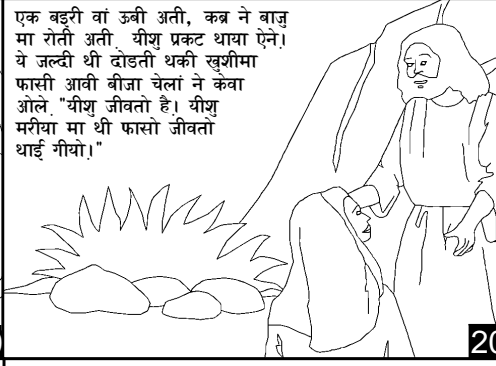 एक बइरी वां ऊबी अती, कब्र ने बाजु
मा रोती अती. यीशु प्रकट थाया ऐने।
ये जल्दी थी दोडती थकी खुशीमा
फासी आवी बीजा चेलां ने केवा
ओले. "यीशु जीवतो है। यीशु
मरीया मा थी फासो जीवतो
थाई गीयो।"